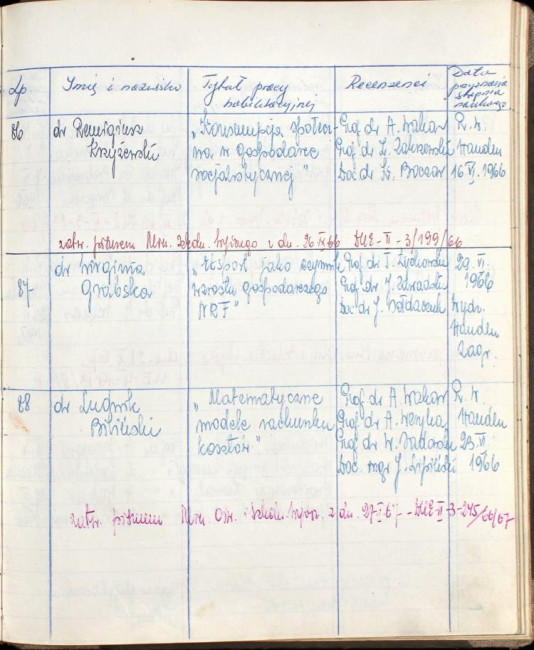 Lp
Imię i nazwisko
Tytuł pracy
habilitacyjnej
Recenzenci
Data
przyznania
stopnia
naukowego
86
dr Remigiusz
Krzyżewski
"Konsumpcja społecz-
na w gospodarce
socjalistycznej"
Prof. dr A. Wakar
Prof. dr L. Zalewski
Doc. dr St. Boczar
R. W.
Handlu
16 VI. 1966
zatw. pismem Min. Szkoln. Wyższego z dn. 26 IX 66 DUE - II - 3/199/66
87
dr Wirginia
Grabska
"Eksport jako czynnik
wzrostu gospodarczego
NRF"
Prof. dr T. Łychowski
Prof. dr J. Zawadzki
Doc. dr J. Sołdaczuk
29. VI.
1966
Wydz.
Handlu
Zagr.
88
dr Ludwik
Bibliński
"Matematyczne
modele rachunku
kosztów"
Prof. dr A. Wakar
Prof. dr A.
Prof. dr W. Sadowski
Doc. mgr J. Lipiński
R. W.
Handlu
23. VI
1966
zatw. pismem Min. Ośw. i Szkoln. Wyższ. z dn. 27 I 67 - DUE-II-3-245/66/67